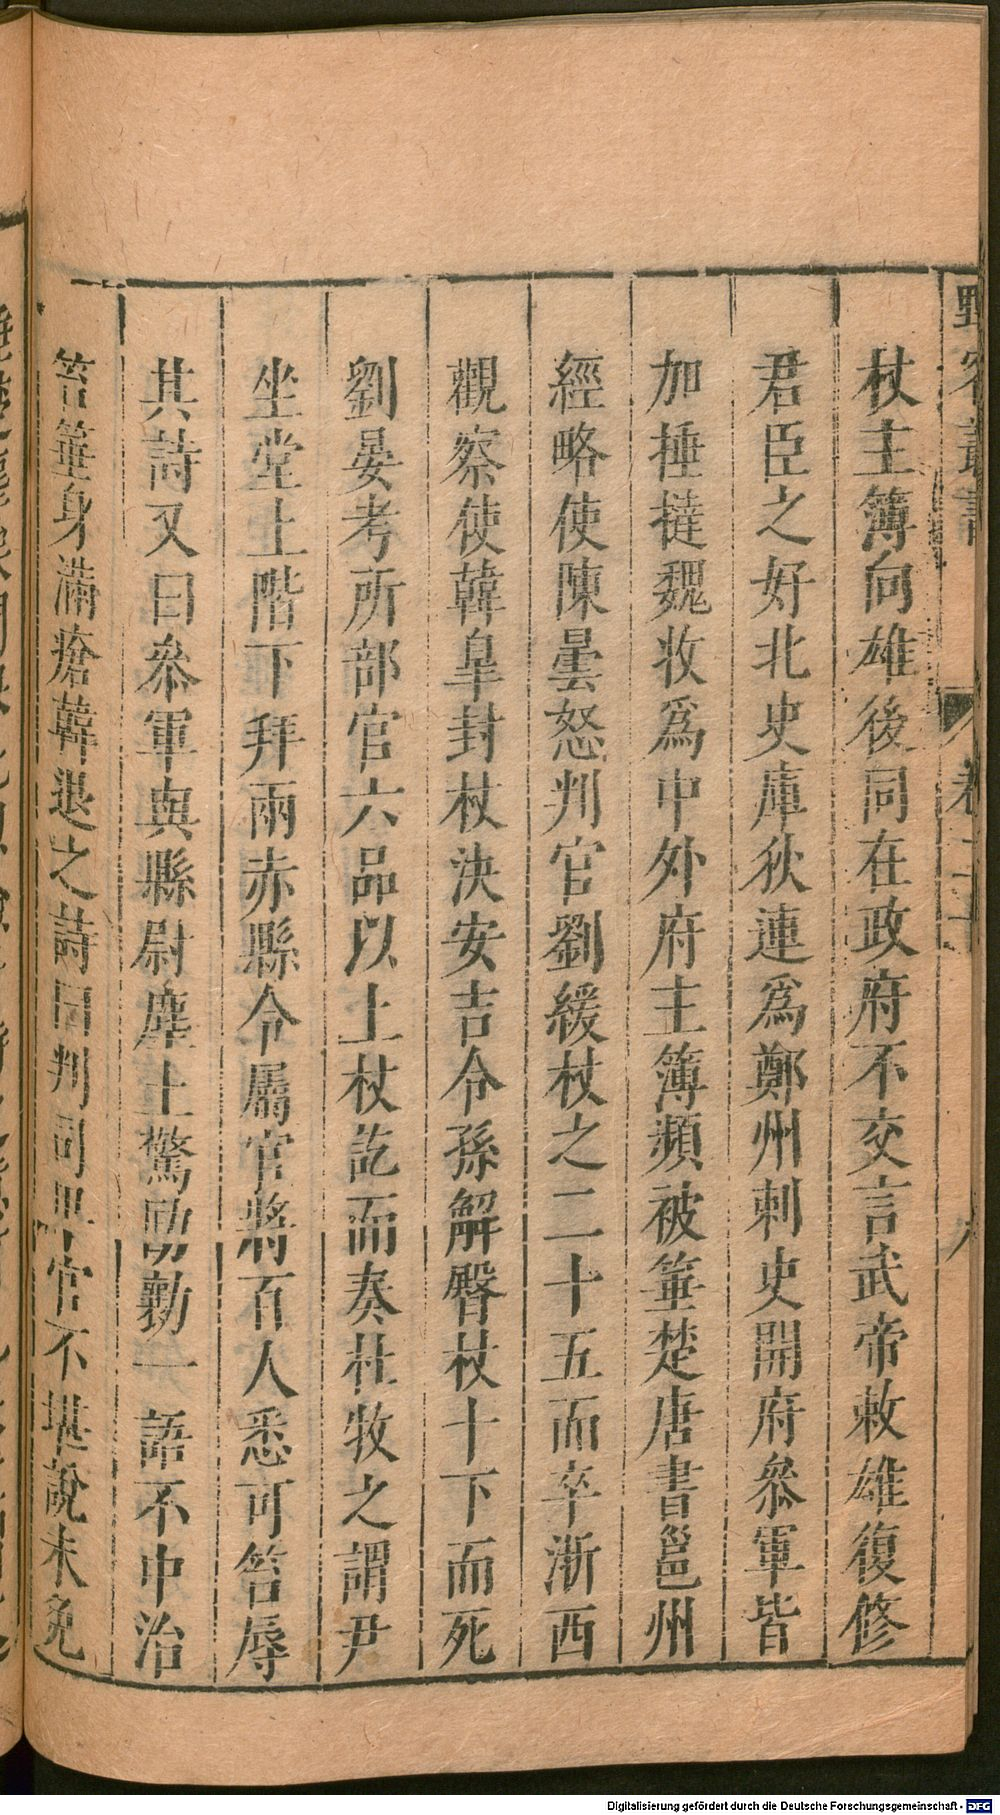 野客叢書 卷二十
杖主簿向雄後同在政府不交言武帝敕雄復修
君臣之好北史庫狄連爲鄭州刺史開府叅軍皆
加捶撻魏收爲中外府主簿頻被箠楚唐書邕州
經略使陳曇怒判官劉緩杖之二十五而卒浙西
觀察使韓臯封杖決安吉令孫解臀杖十下而死
劉晏考所部官六品以上杖訖而奏杜牧之謂尹
坐堂上階下拜兩赤縣令屬官將百人悉可笞辱
其詩又曰叅軍與縣尉塵土驚劻勷一語不中治
笞箠身滿瘡韓退之詩曰判司卑官不堪說未免
Digitalisierung gefördert durch die Deutsche Forschungsgemeinschaft - DFG